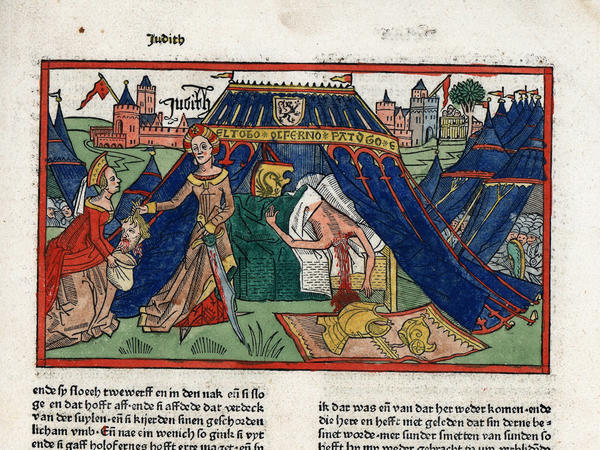 Judith
Judith
ELTOBO * OLFERNO * FATVGO * E
ende sy sloech twewerff en in den nak eñ si slo
ge en dat hofft aff·ende si affdede dat verdeck
van der suylen·eñ si kijerden sinen geschorden
licham vmb·Eñ nae ein wenich so gink si vyt
ende si gaff holofernes hofft erre maget·eñ sy
ik dar was eñ van dar het weder komen·ende
die here en hefft niet geleden dat sin derne be=
smet worde·mer sunder smetten van sunden so
hefft hy my weder gebracht